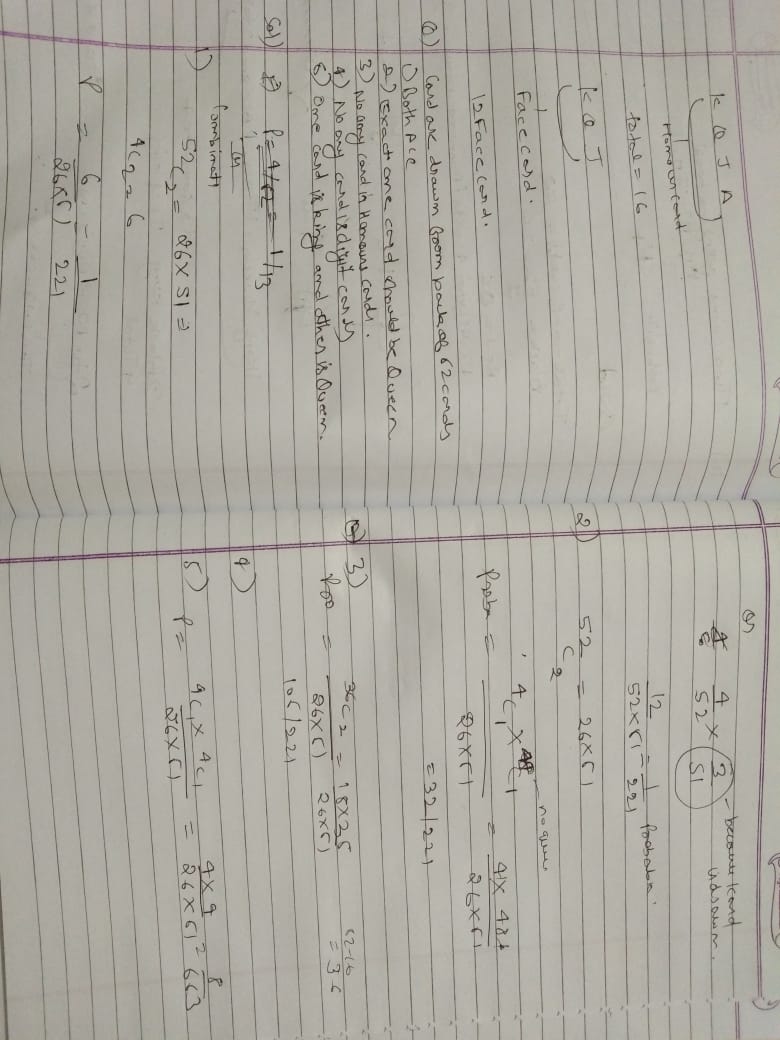 K Q J A
Honour card
total = 16
K Q J
Face card.
12 Face card.
Q) Card are drawn from pack of 52 cards
1) Both Ace
2) Exact one card should be Queen
3) No any card is Honours cards.
4) No any card is digit cards
5) One card is king and other is Queen.
Sol)
P = 4/52 = 1/13
1)
52C2 = 26 x 51 =
4C2 = 6
P = 6 / 26(51) = 1 / 221
Or
4/52 x 3/51 - because 1 card
is drawn.
12 / 52x51 = 1 / 221
2)
52C2 = 26x51
- no queen
= 4C1 x 48C1 / 26x51 = 4 x 48 / 26x51
= 32/221
3)
52-16
= 36
= 36C2 / 26x51 = 18x35 / 26x51
105/221
4)
5)
P = 4C1 x 4C1 / 26x51 = 4x4 / 26x51 = 8 / 663